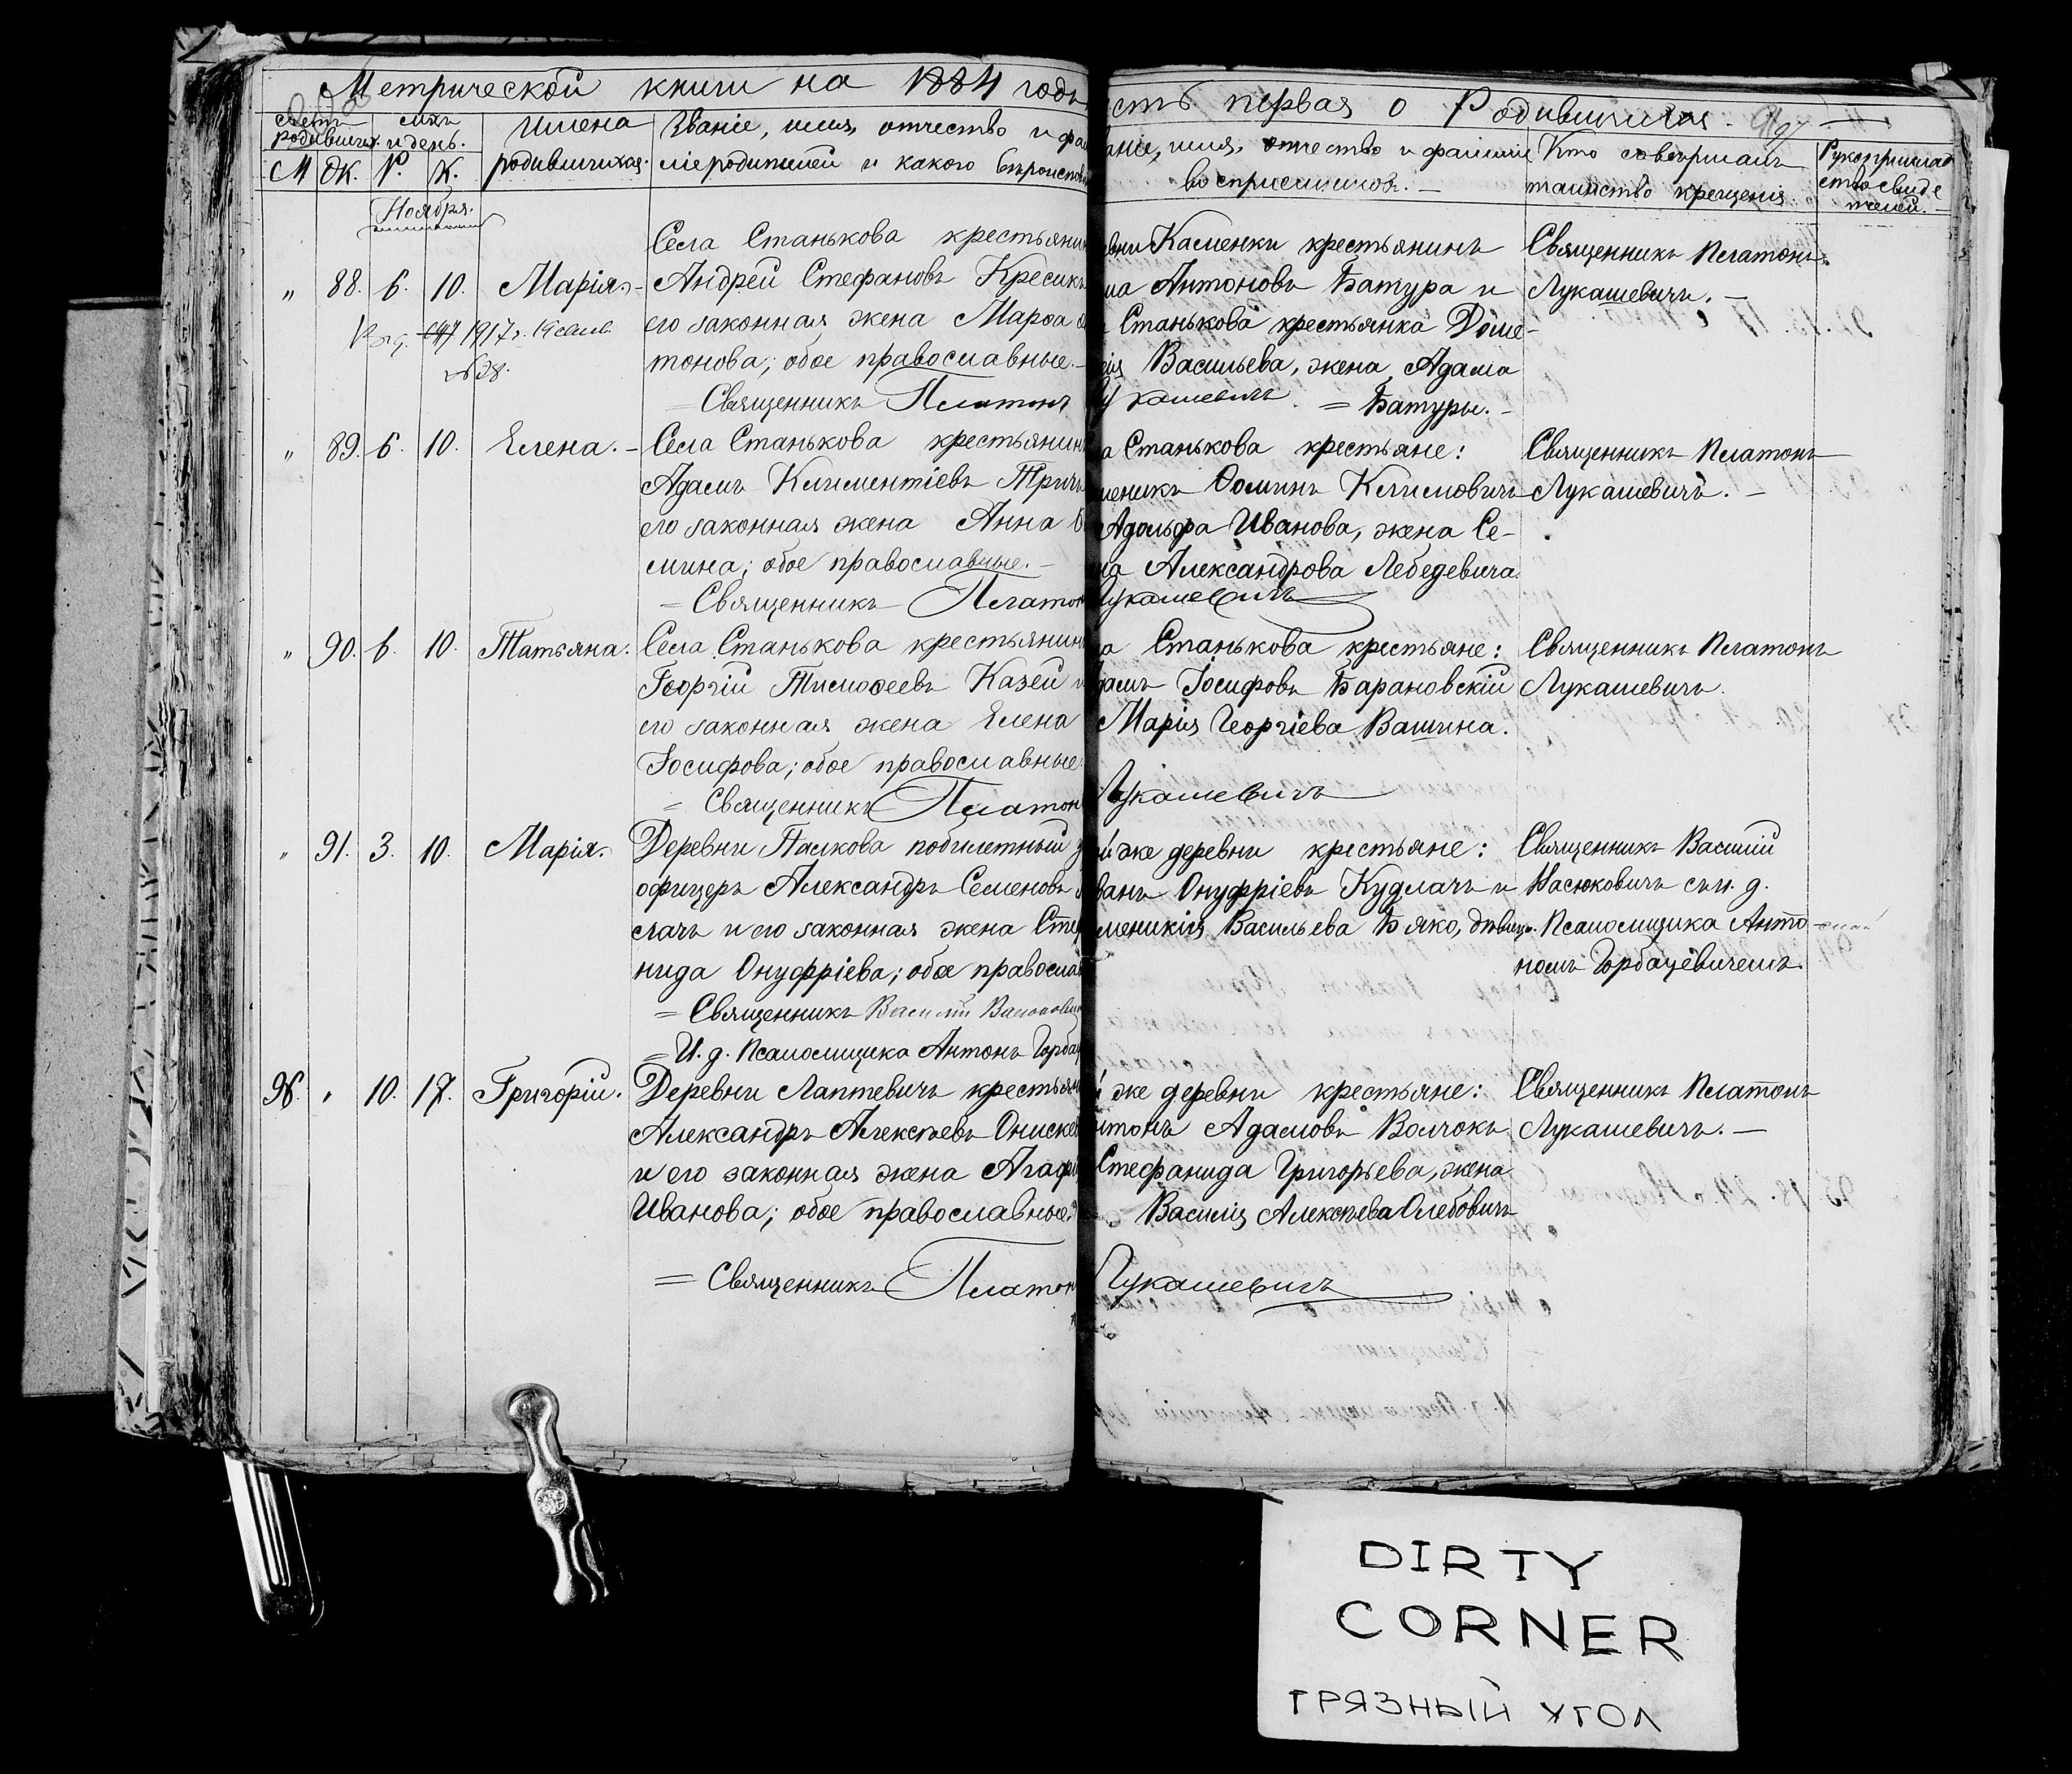 Метрической книги на 1884 годъ
сть первая о Родившихся.
Счетъ родившихся.
и день.
Имена родившихся.
Званіе, имя, отчество и фа
лiе родителей и какого вѣроиспов
аніе, имя, отчество и фамилія
воспріемниковъ. —
Кто совершалъ
таинство крещенія
Рукоприклад
ство свиде
телей. —
М Ж. Р. К.
Ноября.
„ 88. 6. 10. Марія. –
Села Станькова крестьянин
Андрей Стефановъ Кресикъ
его законная жена Марѳа
тонова; обое православные. –
= Священникъ Платонъ
1917г.
№ 28.
вни Каменки крестьянинъ
ма Антоновъ Батура и
Станькова крестьянка Доме-
Васильева, жена Адама
Лукашевичъ. = Батуры. –
Священникъ Платонъ
Лукашевичъ. —
„ 89. 6. 10. Елена. –
Села Станькова крестьянин
Адамъ Климентіевъ
его законная жена Анна
мина; обое православные. –
= Священникъ Платон
а Станькова крестьяне:
меникъ Ѳоминъ Климовичъ
Адольфа Иванова, жена Се-
на Александрова Лебедевича
Лукашевичъ
Священникъ Платонъ
Лукашевичъ. –
„ 90. 6. 10. Татьяна.
Села Станькова крестьянин
Георгій Тимоѳеевъ Казей и
его законная жена Елена
Іосифова; обое православные
= Священникъ Платон
а Станькова крестьяне:
дамъ Іосифовъ Барановскій
Марія Георгіева Вашина.
Лукашевичъ
Священникъ Платонъ
Лукашевичъ.
„ 91. 3. 10. Марія.
Деревни Палкова побилетный у
офицеръ Александръ Семеновъ
слачъ и его законная жена Сте
нида Онуфріева; обое правосла
= Священникъ Василій
= И. д. Псаломщика Антонъ Горба
й же деревни крестьяне:
ванъ Онуфріевъ Кудлачъ и
Васильева Бяко, дѣвица.
Священникъ Василій
съ и. д.
Псаломщика Анто-
номъ Горбацевичемъ.
96. „ 10. 17. Григорій.
Деревни Лаптевичъ крестьян
Александръ Алексѣевъ Ониске
и его законная жена Агафі
Иванова; обое православные.
= Священникъ Платон
й же деревни крестьяне:
нтонъ Адамовъ Волчокъ
Стефанида Григорьева, жена
Василія Алексѣева Олебовичъ
Лукашевичъ
Священникъ Платонъ
Лукашевичъ. —
DIRTY
CORNER
ГРЯЗНЫЙ УГОЛ